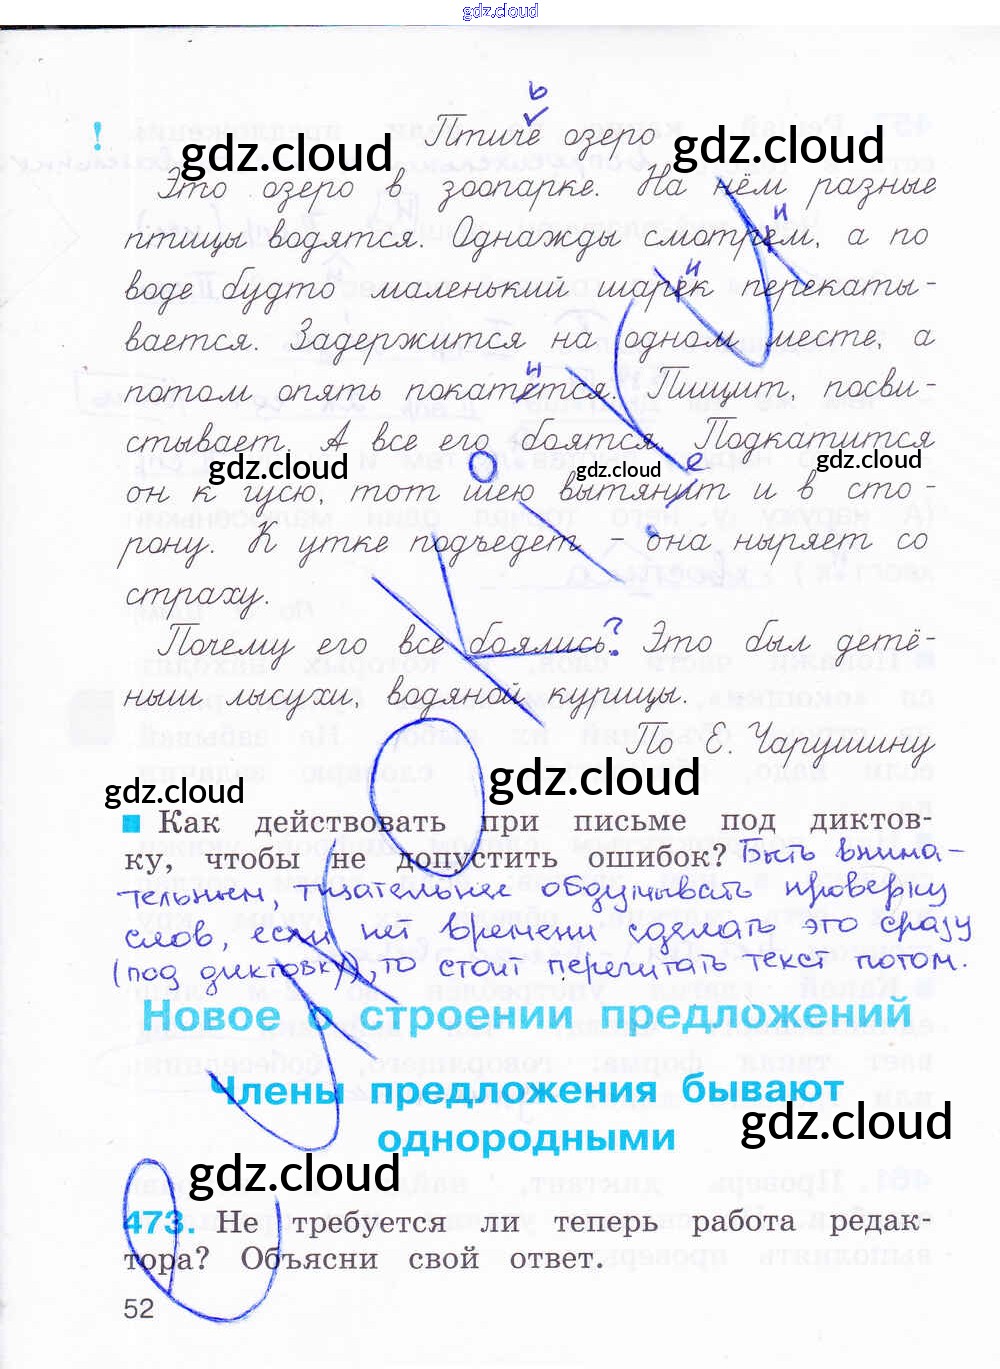 gdz.cloud
ь
! Птиче озеро
gdz.cloud gdz.cloud
Это озеро в зоопарке. На нём разные
птицы водятся. Однажды смотрем, а по
и
воде будто маленький шарек перекаты-
и
вается. Задержится на одном месте, а
потом опять покатется. Пищит, посви-
и
стывает. А все его боятся. Подкатится
gdz.cloud gdz.cloud gdz.cloud
он к гусю, тот шею вытянит и в сто-
е
рону. К утке подъедет – она ныряет со
страху.
Почему его все боялись? Это был детё-
ныш лысухи, водяной курицы.
По Е. Чарушину
gdz.cloud gdz.cloud
Как действовать при письме под диктов-
ку, чтобы не допустить ошибок? Быть внима-
тельным, тщательнее обдумывать проверку
слов, если нет времени сделать это сразу
(под диктовку), то стоит перечитать текст потом.
Новое о строении предложений
Члены предложения бывают
однородными
gdz.cloud
gdz.cloud
473. Не требуется ли теперь работа редак-
тора? Объясни свой ответ.
52